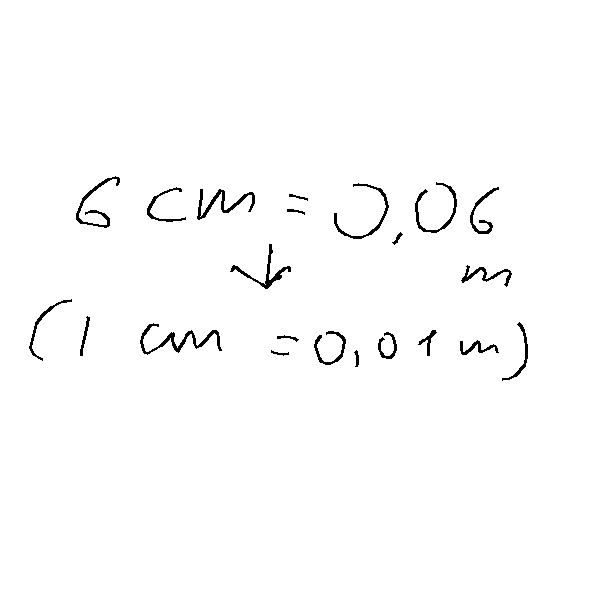 6 cm = 0,06
m
(1 cm = 0,01 m)